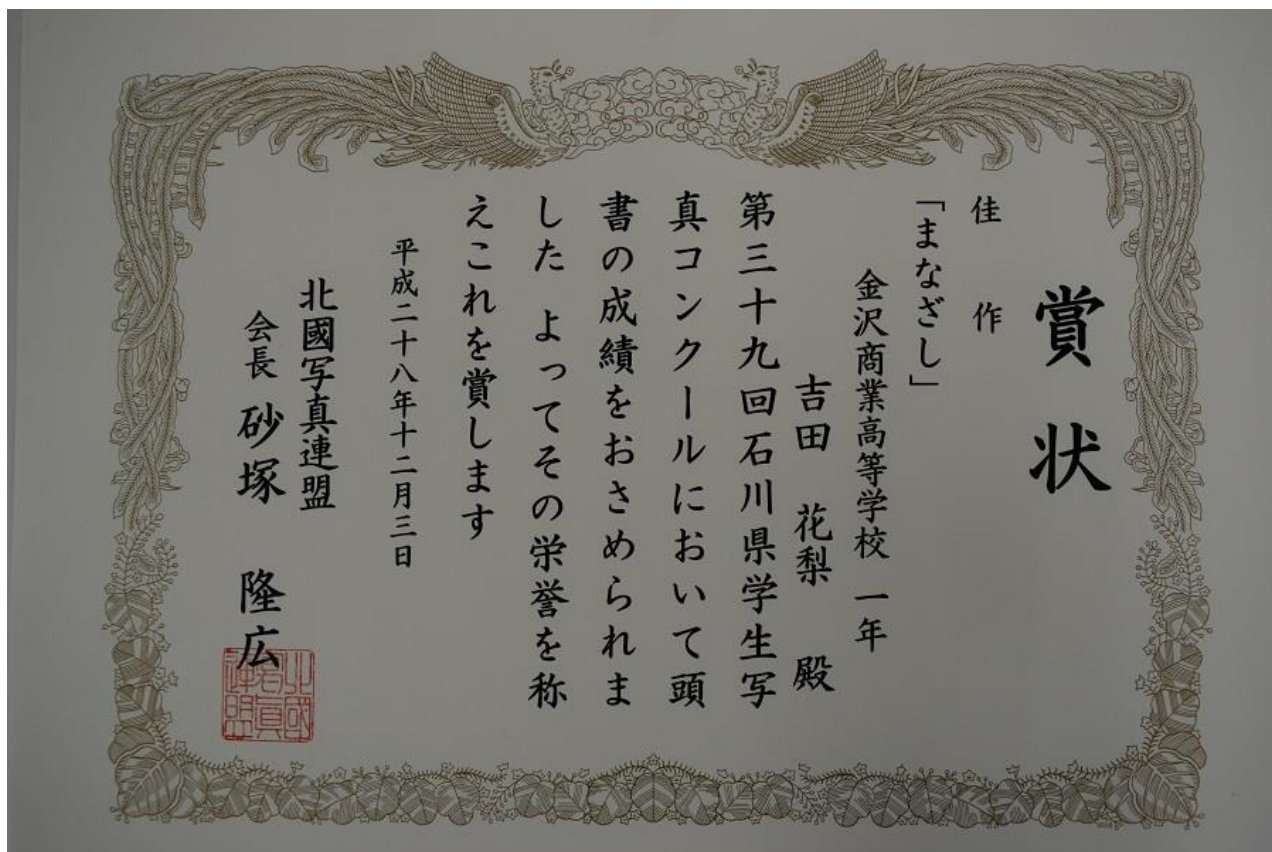 賞状
佳作
「まなざし」
金沢商業高等学校 一年
吉田 花梨 殿
第三十九回石川県学生写
真コンクールにおいて頭
書の成績をおさめられま
した よってその栄誉を称
えこれを賞します
平成二十八年十二月三日
北國写真連盟
会長 砂塚 隆広
北國写真連盟